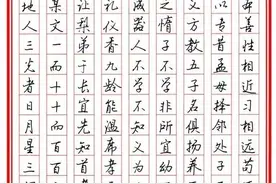 善性相近习相远苟
专昔孟母择邻处子
方教五子名俱扬养
之惰子不学非所宜幼
器人不学不知义为
礼仪香九龄能温席孝
让梨弟于长宜先知首孝
某文一而十十而百百
地人三光者日月星三